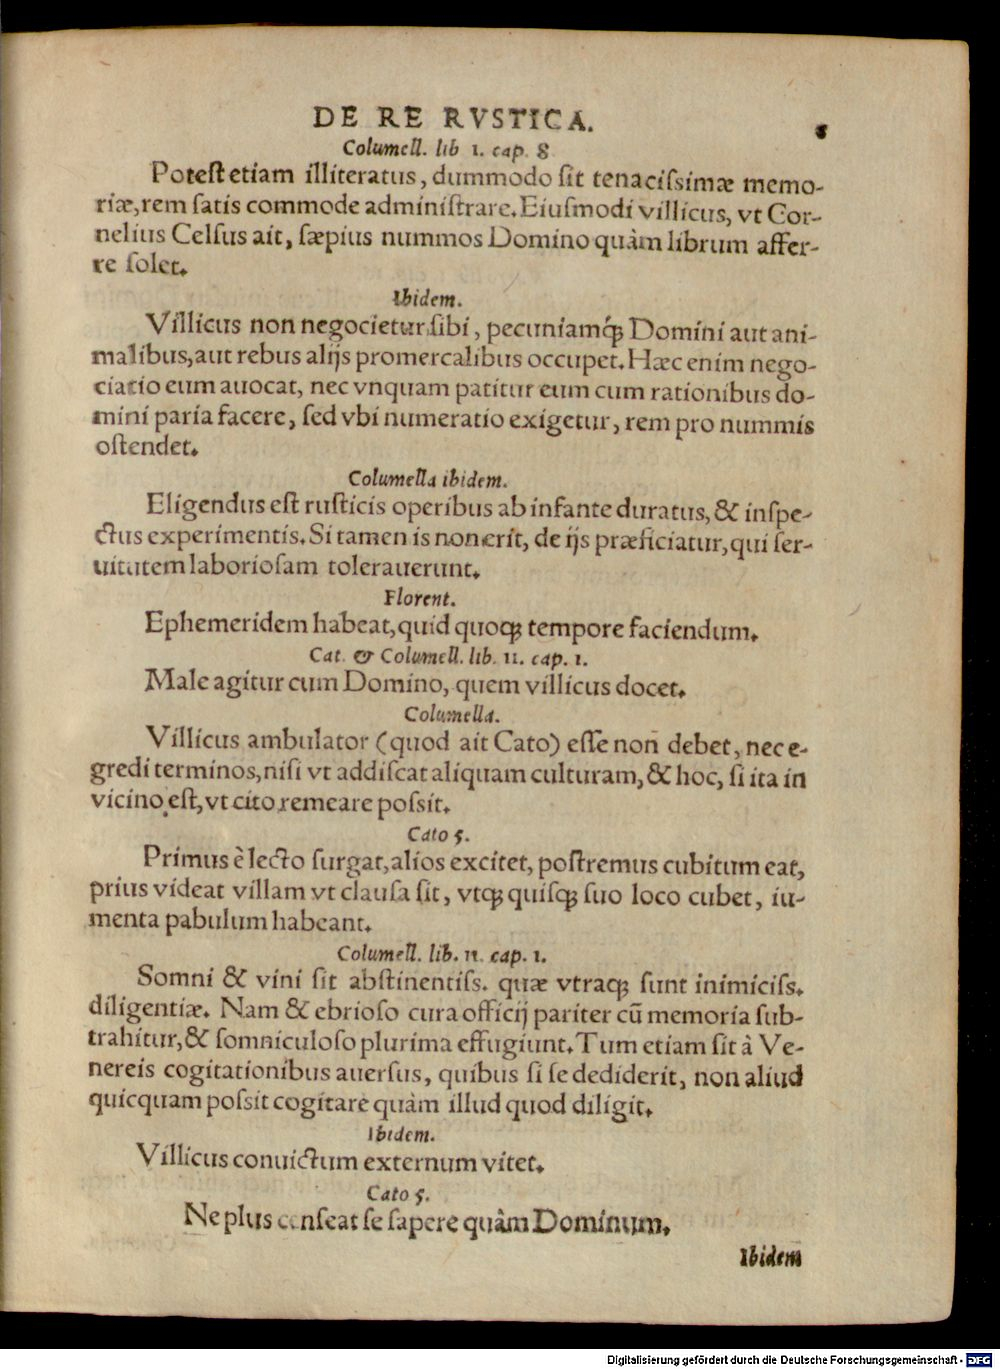 DE RE RVSTICA. 8
Columell. lib 1. cap. 8
Potest etiam illiteratus, dummodo sit tenacissimæ memo-
riæ, rem satis commode administrare. Eiusmodi villicus, vt Cor-
nelius Celsus ait, sæpius nummos Domino quàm librum affer-
re solet.
Ibidem.
Villicus non negocietur sibi, pecuniamq́ꝫ Domini aut ani-
malibus, aut rebus alijs promercalibus occupet. Hæc enim nego-
ciatio eum auocat, nec vnquam patitur eum cum rationibus do-
mini paria facere, sed vbi numeratio exigetur, rem pro nummis
ostendet.
Columella ibidem.
Eligendus est rusticis operibus ab infante duratus, & inspe-
ctus experimentis. Si tamen is non erit, de ijs præficiatur, qui ser-
uitutem laboriosam tolerauerunt.
Florent.
Ephemeridem habeat, quid quoqꝫ tempore faciendum.
Cat. & Columell. lib. 11. cap. 1.
Male agitur cum Domino, quem villicus docet.
Columella.
Villicus ambulator (quod ait Cato) esse non debet, nec e-
gredi terminos, nisi vt addiscat aliquam culturam, & hoc, si ita in
vicino est, vt cito remeare possit.
Cato 5.
Primus è lecto surgat, alios excitet, postremus cubitum eat,
prius videat villam vt clausa sit, vtqꝫ quisqꝫ suo loco cubet, iu-
menta pabulum habeant.
Columell. lib. 11. cap. 1.
Somni & vini sit abstinentiss. quæ vtraqꝫ sunt inimiciss.
diligentiæ. Nam & ebrioso cura officij pariter cū memoria sub-
trahitur, & somniculoso plurima effugiunt. Tum etiam sit à Ve-
nereis cogitationibus auersus, quibus si se dediderit, non aliud
quicquam possit cogitare quàm illud quod diligit.
Ibidem.
Villicus conuictum externum vitet.
Cato 5.
Ne plus censeat se sapere quàm Dominum.
Ibidem
Digitalisierung gefördert durch die Deutsche Forschungsgemeinschaft - DFG